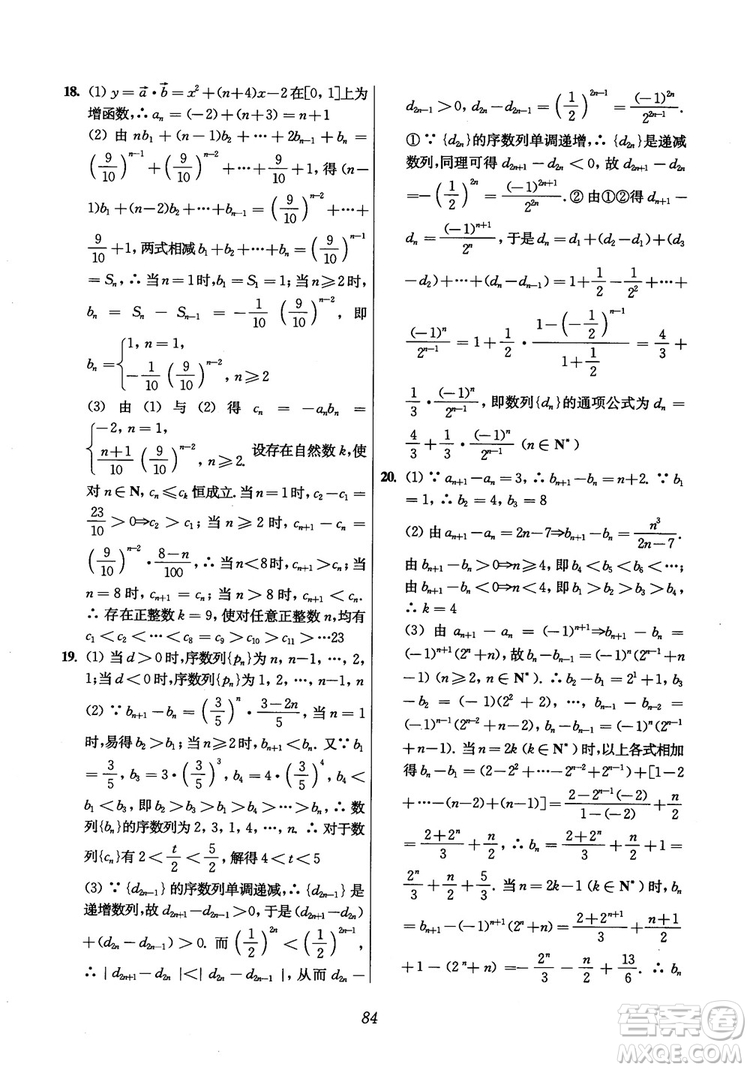 18. (1) y = a⃗ · b⃗ = x² + (n+4)x − 2 在[0, 1]上为
增函数, ∴ aₙ = (−2) + (n+3) = n+1
(2) 由 nb₁ + (n−1)b₂ + ⋯ + 2bₙ₋₁ + bₙ =
(9/10)ⁿ⁻¹ + (9/10)ⁿ⁻² + ⋯ + 9/10 + 1, 得 (n−
1)b₁ + (n−2)b₂ + ⋯ + bₙ₋₁ = (9/10)ⁿ⁻² + ⋯ +
9/10 + 1, 两式相减 b₁ + b₂ + ⋯ + bₙ = (9/10)ⁿ⁻¹
= Sₙ, ∴ 当 n = 1 时, b₁ = S₁ = 1; 当 n ≥ 2 时,
bₙ = Sₙ − Sₙ₋₁ = −1/10 (9/10)ⁿ⁻², 即
bₙ = {1, n = 1, −1/10 (9/10)ⁿ⁻², n ≥ 2
(3) 由 (1) 与 (2) 得 cₙ = −aₙbₙ =
{−2, n = 1, (n+1)/10 (9/10)ⁿ⁻², n ≥ 2. 设存在自然数 k, 使
对 n ∈ N, cₙ ≤ cₖ 恒成立. 当 n = 1 时, c₂ − c₁ =
23/10 > 0 ⇒ c₂ > c₁; 当 n ≥ 2 时, cₙ₊₁ − cₙ =
(9/10)ⁿ⁻² · (8−n)/100, ∴ 当 n < 8 时, cₙ₊₁ > cₙ; 当
n = 8 时, cₙ₊₁ = cₙ; 当 n > 8 时, cₙ₊₁ < cₙ.
∴ 存在正整数 k = 9, 使对任意正整数 n, 均有
c₁ < c₂ < ⋯ < c₈ = c₉ > c₁₀ > c₁₁ > ⋯23
19. (1) 当 d > 0 时, 序数列{pₙ}为 n, n−1, ⋯, 2,
1; 当 d < 0 时, 序数列{pₙ}为 1, 2, ⋯, n−1, n
(2) ∵ bₙ₊₁ − bₙ = (3/5)ⁿ · (3−2n)/5, 当 n = 1
时, 易得 b₂ > b₁, 当 n ≥ 2 时, bₙ₊₁ < bₙ. 又∵ b₁
= 3/5, b₃ = 3·(3/5)³, b₄ = 4·(3/5)⁴, b₄ <
b₁ < b₃, 即 b₂ > b₃ > b₁ > b₄ > ⋯ > bₙ, ∴ 数
列{bₙ}的序数列为 2, 3, 1, 4, ⋯, n. ∴ 对于数
列{cₙ}有 2 < t/2 < 5/2, 解得 4 < t < 5
(3) ∵ {d₂ₙ₋₁} 的序数列单调递减, ∴ {d₂ₙ₋₁} 是
递增数列, 故 d₂ₙ₊₁ − d₂ₙ₋₁ > 0, 于是 (d₂ₙ₊₁ − d₂ₙ)
+ (d₂ₙ − d₂ₙ₋₁) > 0. 而 (1/2)²ⁿ < (1/2)²ⁿ⁻¹,
∴ |d₂ₙ₊₁ − d₂ₙ| < |d₂ₙ − d₂ₙ₋₁|, 从而 d₂ₙ −
d₂ₙ₋₁ > 0, d₂ₙ − d₂ₙ₋₁ = (1/2)²ⁿ⁻¹ = (−1)²ⁿ/2²ⁿ⁻¹.
① ∵ {d₂ₙ}的序数列单调递增, ∴ {d₂ₙ}是递减
数列, 同理可得 d₂ₙ₊₁ − d₂ₙ < 0, 故 d₂ₙ₊₁ − d₂ₙ
= −(1/2)²ⁿ = (−1)²ⁿ⁺¹/2²ⁿ. ② 由①②得 dₙ₊₁ −
dₙ = (−1)ⁿ⁺¹/2ⁿ, 于是 dₙ = d₁ + (d₂ − d₁) + (d₃
− d₂) + ⋯ + (dₙ − dₙ₋₁) = 1 + 1/2 − 1/2² + ⋯ +
(−1)ⁿ/2ⁿ⁻¹ = 1 + 1/2 · (1 − (−1/2)ⁿ⁻¹)/(1 + 1/2) = 4/3 +
1/3 · (−1)ⁿ/2ⁿ⁻¹, 即数列{dₙ}的通项公式为 dₙ =
4/3 + 1/3 · (−1)ⁿ/2ⁿ⁻¹ (n ∈ N*)
20. (1) ∵ aₙ₊₁ − aₙ = 3, ∴ bₙ₊₁ − bₙ = n+2. ∵ b₁
= 1, ∴ b₂ = 4, b₃ = 8
(2) 由 aₙ₊₁ − aₙ = 2n−7 ⇒ bₙ₊₁ − bₙ = n³/(2n−7).
由 bₙ₊₁ − bₙ > 0 ⇒ n ≥ 4, 即 b₄ < b₅ < b₆ < ⋯;
由 bₙ₊₁ − bₙ < 0 ⇒ n ≤ 3, 即 b₁ > b₂ > b₃ > b₄,
∴ k = 4
(3) 由 aₙ₊₁ − aₙ = (−1)ⁿ⁺¹ ⇒ bₙ₊₁ − bₙ =
(−1)ⁿ⁺¹(2ⁿ + n). 故 bₙ − bₙ₋₁ = (−1)ⁿ(2ⁿ⁻¹ + n
−1) (n ≥ 2, n ∈ N*). ∴ b₂ − b₁ = 2¹ + 1, b₃
− b₂ = (−1)(2² + 2), ⋯, bₙ₋₁ − bₙ₋₂ =
(−1)ⁿ⁻¹(2ⁿ⁻² + n − 2), bₙ − bₙ₋₁ = (−1)ⁿ(2ⁿ⁻¹
+ n − 1). 当 n = 2k (k ∈ N*) 时, 以上各式相加
得 bₙ − b₁ = (2 − 2² + ⋯ − 2ⁿ⁻² + 2ⁿ⁻¹) + [1 − 2
+ ⋯ − (n−2) + (n−1)] = (2 − 2ⁿ⁻¹(−2))/(1 − (−2)) + n/2
= (2 + 2ⁿ)/3 + n/2, ∴ bₙ = (2 + 2ⁿ)/3 + n/2 + 1 =
2ⁿ/3 + n/2 + 5/3. 当 n = 2k − 1 (k ∈ N*) 时, bₙ
= bₙ₊₁ − (−1)ⁿ⁺¹(2ⁿ + n) = (2 + 2ⁿ⁺¹)/3 + (n+1)/2
+ 1 − (2ⁿ + n) = −2ⁿ/3 − n/2 + 13/6. ∴ bₙ
84
答案圈
MXQE.COM